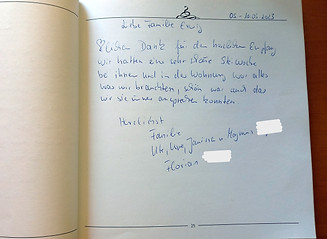 02.-10.03.2018
Liebe Familie Ewig
Vielen Dank für den herzlichen Empfang
wir hatten eine sehr schöne Skiwoche
bei ihnen und in der Wohnung war alles
was wir brauchten, schön war auch das
wir sie immer ansprechen konnten
Herzlichst
Familie
Ute, Uwe, Janina u Magnus
Florian